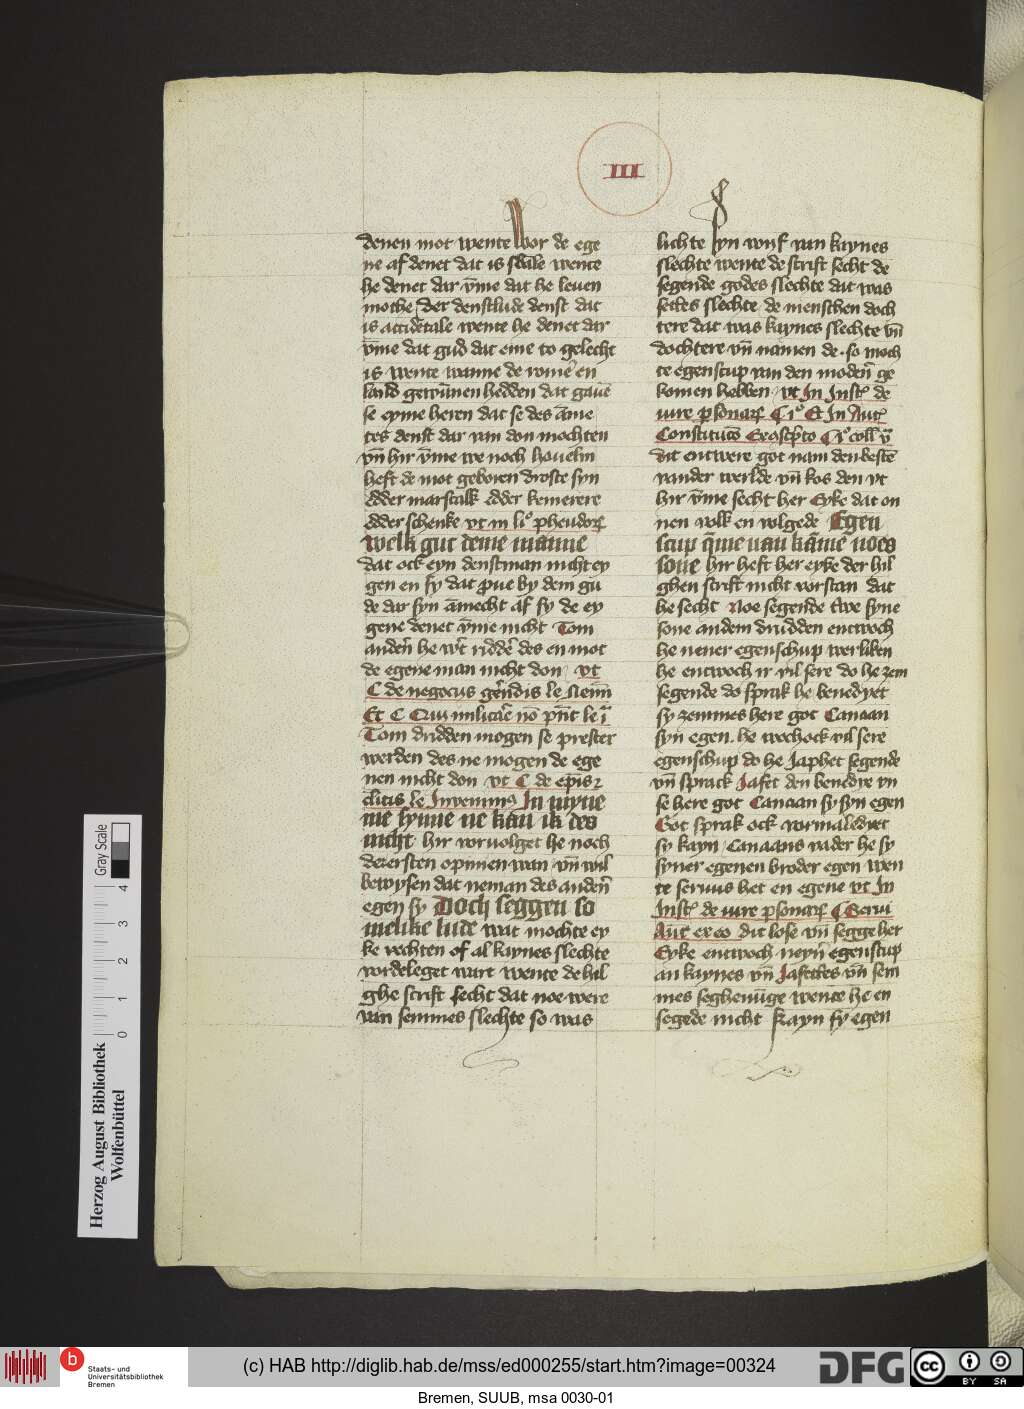 III
denen mot wente vor de ege
ne af denet dat is sw̄le wente
he denet dar v̄me dat he leuen
moche der denstlude denst dat
is accidētale wente he denet dar
v̄me dat gud dat eme to gelecht
is wente wanne de romē en
land gewūnen hedden dat gauē
se eyme heren dat se des āme
tes denst dar van don mochten
vn̄ hir v̄me we noch houelin
heft de mot geboren droste syn
Odder marscalk Odder kemerere
Odder schenke vt in li° pheudoꝝ
Welk gut deme manne
dat ock eyn denstman nicht ey
gen en sy dat proue by dem gu
de dar syn āmecht af sy de ey
gene denet v̄me nicht Tom
anden he wt ridde des en mot
de egene man nicht don vt
C de negocus gerēdis le Nem̄
Et C Cius militare nō pn̄t le i
Tom drudden mogen se prester
werden des ne mogen de ege
nen nicht don vt C de epis
clitis le Inuenimꝰ In myne
me synne ne kan ik des
nicht hir voruolget he noch
den ersten opinien wan vn̄ wil
bewysen dat neman des anden
egen sy Doch seggen so
melike lude wat mochte ey
ke vechten of al kaynes slechte
vordeleget wart wente de hil
ghe scrift secht dat noe were
van semmes slechte so was
lichte syn wyf van kaynes
slechte wente de scrift secht de
segende godes slechte dat was
settes slechte de menschen doch
tere dat was kaynes slechte vn̄
dochtere vn̄ namen de so moch
te egenscup van den moden̄ ge
komen hebben vt In Inst de
iure psonaꝝ C i° Et In Aut
Constitucō
dit entwere got nam den beste
van der werlde vn̄ kos den vt
hir v̄me secht her Eyke dat on
nen volk en volgede Egen
scup q̄me van kāme noes
sone hir heft her eyke der hil
ghen scrift nicht vorstan dat
he secht Noe segende twe syne
sone andem drudden entwoch
he nener egenschup werliken
he entwoch ir vil sere do he zem
segende do sprak he benedyet
sy zemmes here got Canaan
syn egen he woch ock vil sere
egenschup do he Japhet segende
vn̄ sprack Jafet den benedye vn
se here got Canaan sy syn egen
Got sprak ock vormaledyet
sy kayn Canaans vader he sy
syner egenen broder egen wen
te seruus het en egene vt In
Inst de iure psonaꝝ C Serui
Aut ex eo dit lose vn̄ segge her
Eyke entwoch neyn egenscup
an kaynes vn̄ Jafettes vn̄ sem
mes seghenūge wente he en
segede nicht kayn sy egen
Gray Scale
4
3
2
1
0
Herzog August Bibliothek
Wolfenbüttel
b
Staats- und
Universitätsbibliothek
Bremen
(c) HAB http://diglib.hab.de/mss/ed000255/start.htm?image=00324
DFG
cc BY SA
Bremen, SUUB, msa 0030-01